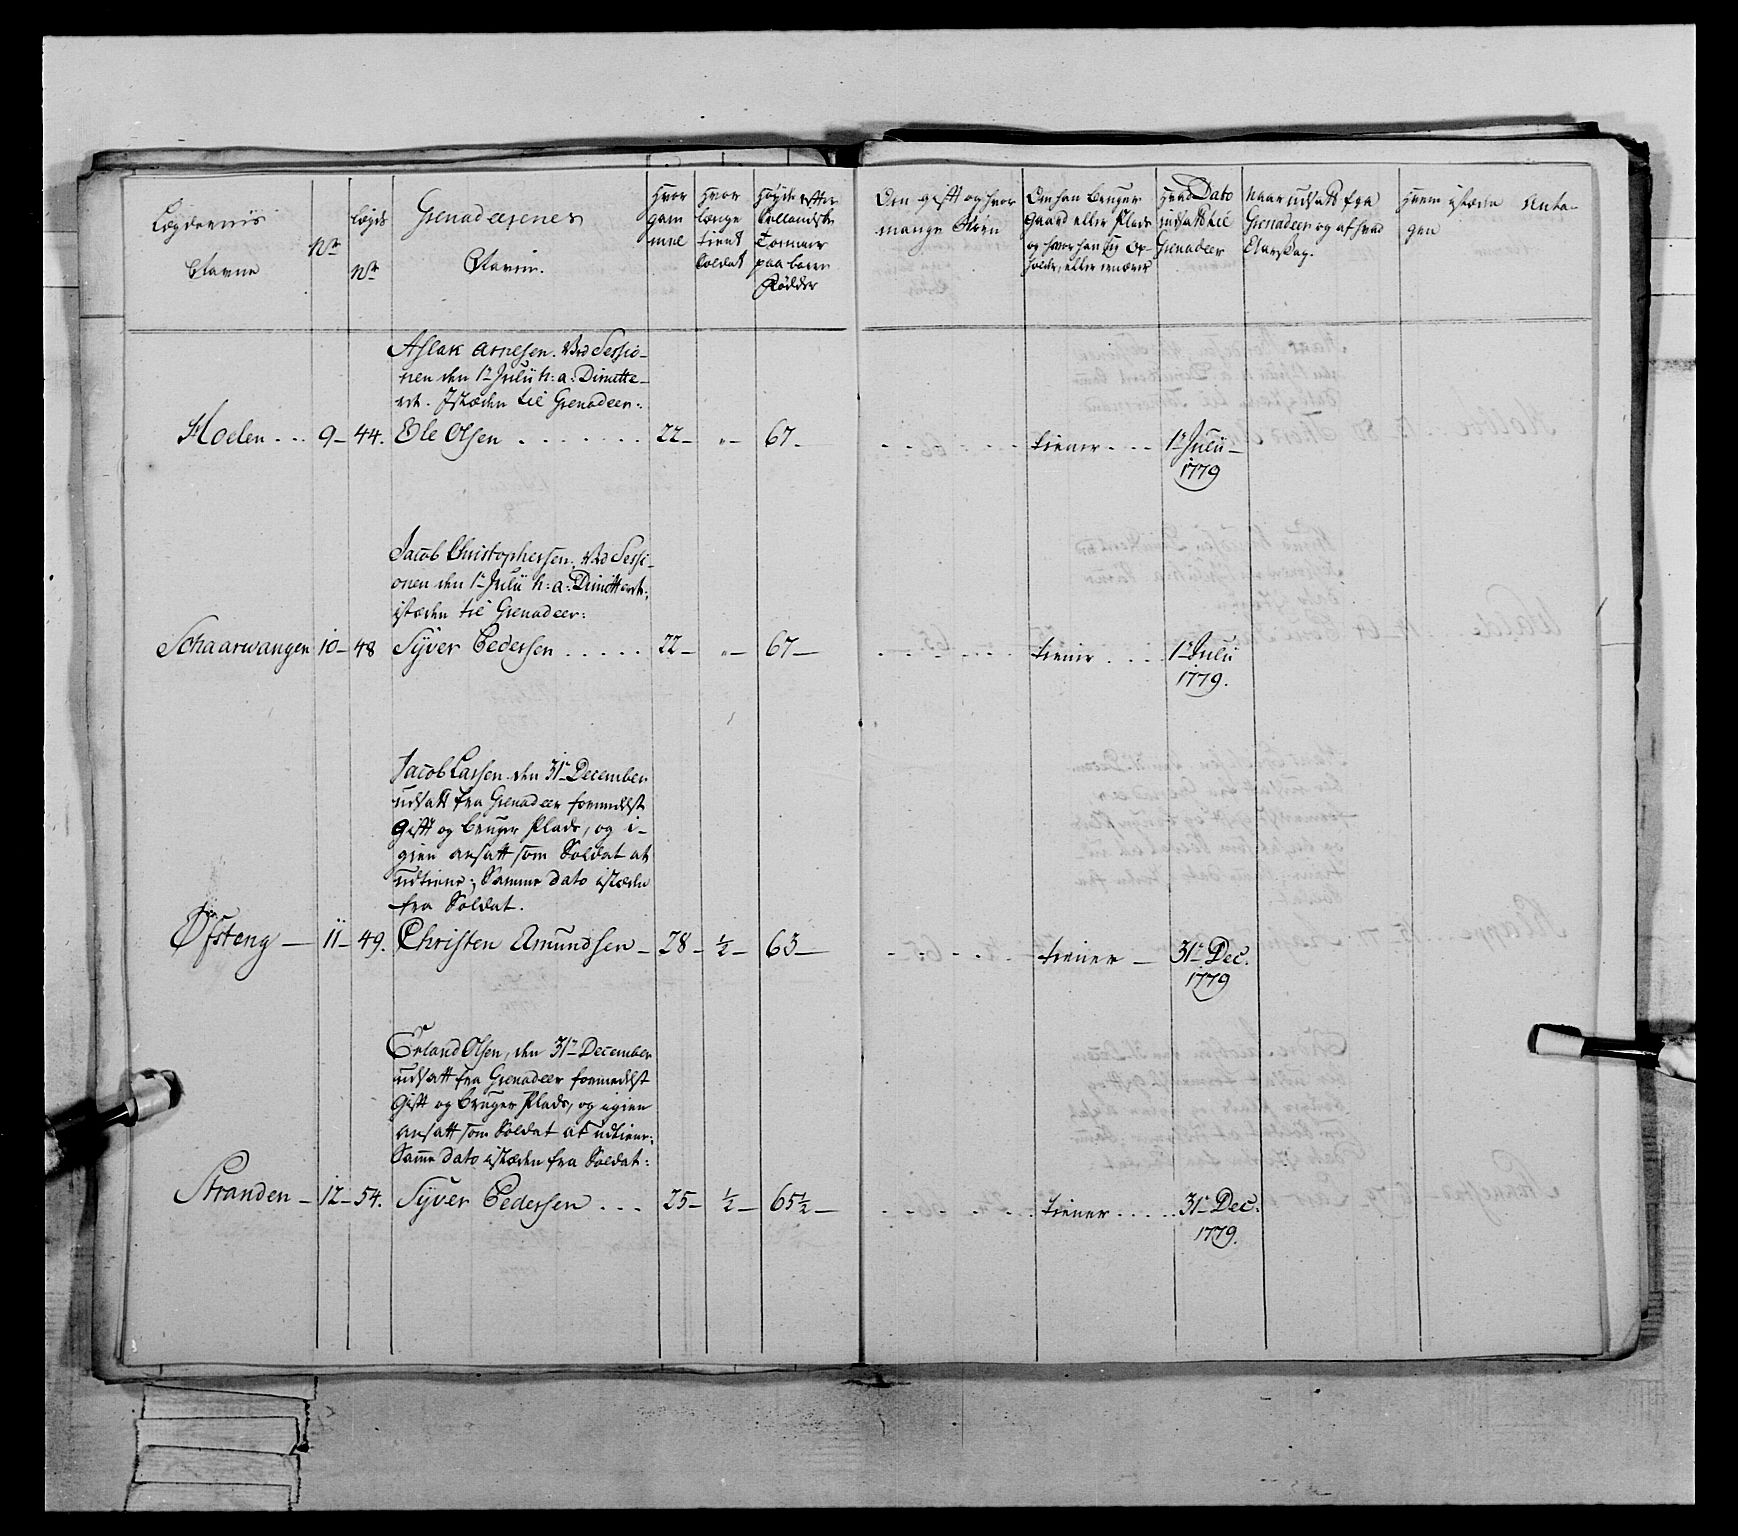 Lægdernis
Navne
No
Lægds
No
Grenadeerenes
Navne.
Hvor
gam
mel
Hvor
længe
tient
Soldat
Høyde efter
Hollandske
Tommer
paa bare
Fødder
Om gift og hvor
mange Børn
Om han bruger
gaard eller Plads
og hvor han sig op-
holder, eller ernærer
Hvad Dato
indsatt til
Grenadeer
Naar udsatt fra
Grenadeer og af hvad
Aarsag.
Hvem istæden Anta-
gen
Aslak Arnesen. Ved Sessio-
nen den 1te Julii h: a: Dimitte-
ret. Istæden til Grenadeer:
Hoelen ... 9- 44. Ole Olsen . . . . . . . 22- „- 67- tiener .... 1te Julii-
1779
Jacob Christophersen. Ved Sessi-
onen den 1te Julii h: a: Dimitteret:
istæden til Grenadeer:
Schaarwangen 10- 48 Syver Pedersen . . . . . 22- „- 67- tiener . . . . 1te Julii
1779.
Jacob Larsen. den 31te December
udsatt fra Grenadeer formedelst
Gift og bruger Plads, og i-
gien ansatt som Soldat at
udtiene; Samme dato istæden
fra Soldat.
Øfsteng - 11- 49. Christen Amundsen - 28- ½- 63- tiener - 31te Dec.
1779
Erland Olsen, den 31te December
udsatt fra Grenadeer formedelst
Gift og bruger Plads, og igien
ansatt som Soldat at udtiene:
Samme dato istæden fra Soldat:
Stranden - 12- 54. Syver Pedersen . . . 25- ½- 65½- tiener ..... 31te Dec:
1779.